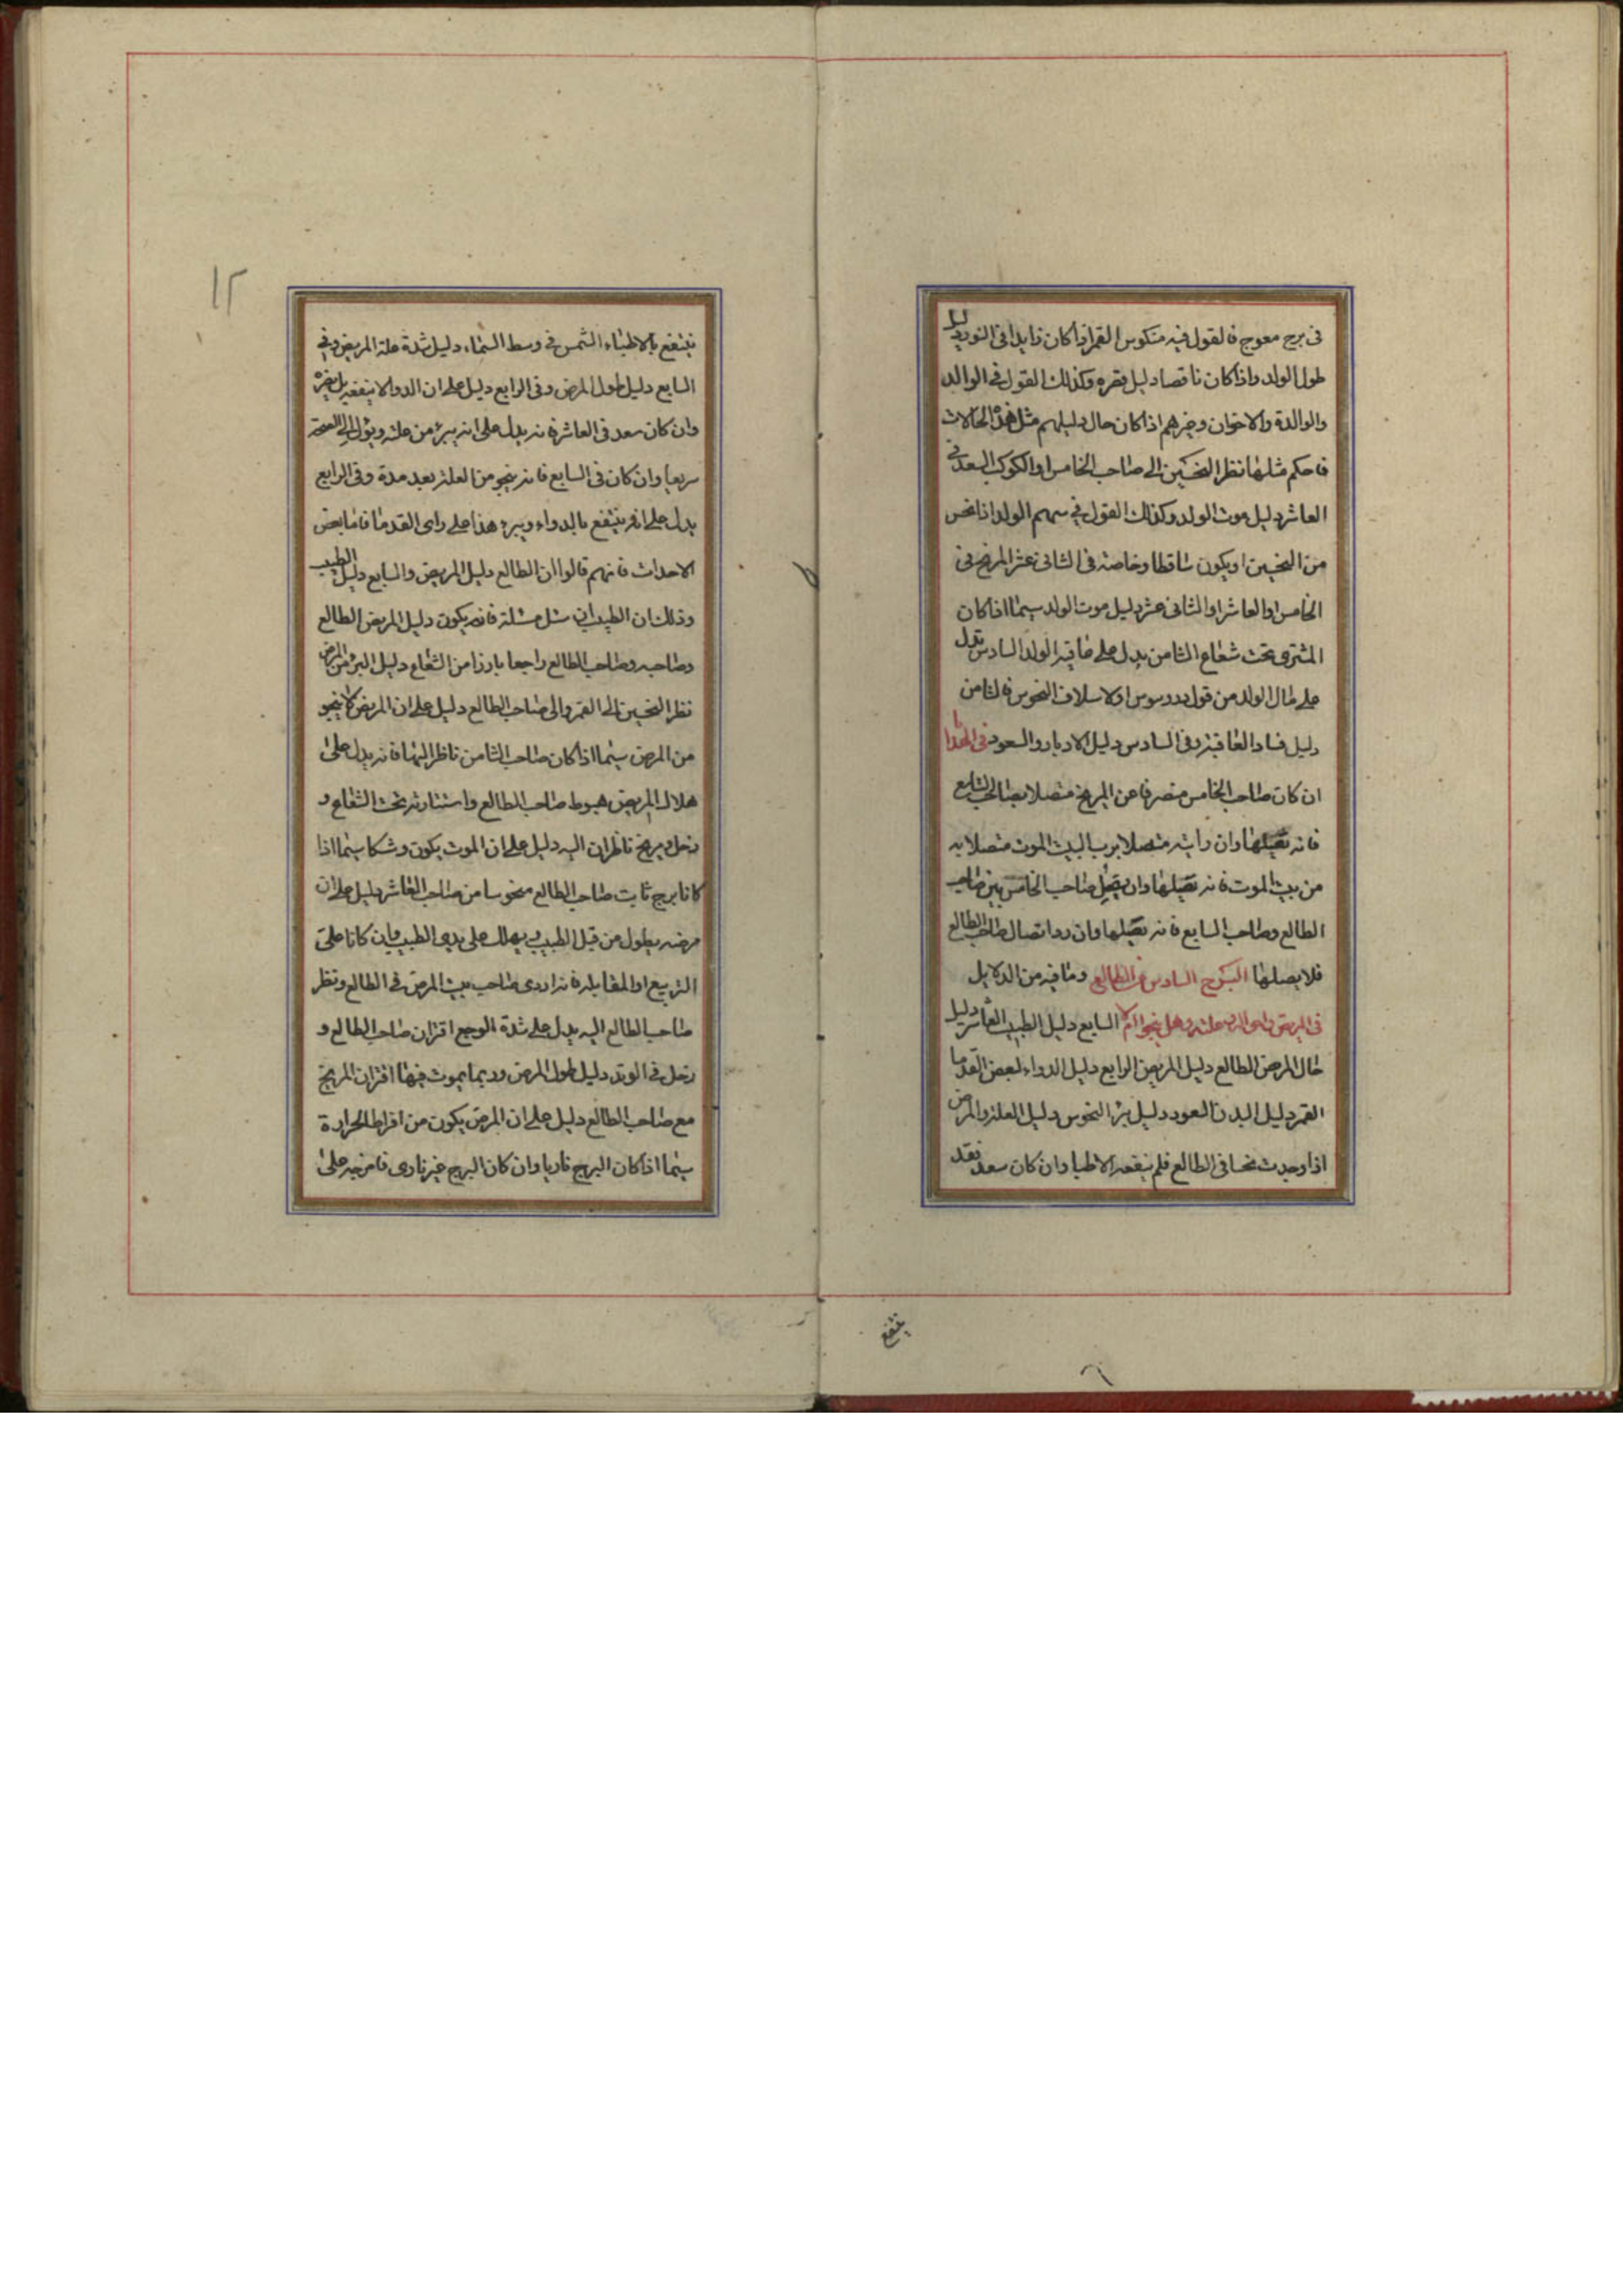 فى برج معوج فالقول فيه منكوس القمر اذا كان زايدا فى النور دليل
طول الولد واذا كان ناقصا دليل قصره وكذلك القول فى الوالد
والوالدة والاخوان وغيرهم اذا كان حال دليلهم مثل هذه الحالات
فاحكم مثلها نظر النحسين الى صاحب الخامس او الكوكب السعد فى
العاشر دليل موت الولد وكذلك القول فى سهم الولد اذا نحس
من النحسين او يكون ساقطا وخاصة فى الثانى عشر المريخ فى
الخامس او العاشر او الثانى عشر دليل موت الولد سيما اذا كان
المشترى تحت شعاع الثامن يدل على عاقبة الولد السادس يدل
على مال الولد من قول دوروسوس اولا سلاف النحوس فى الثامن
دليل فساد العاقبة وفى السادس دليل الادبار والسعود فى الهذا
ان كان صاحب الخامس منصرفا عن المريخ متصلا بصاحب السابع
فانه يصلها وان رايته متصلا برب البيت الموت متصلا به
من بيت الموت فانه يصلها وان يصل صاحب الخامس بين صاحب
الطالع وصاحب السابع فانه يصلها وان رد اتصال صاحب الطالع
فلا يصلها البرج السادس من الطالع وما فيه من الدلايل
فى المريض علته وهل ينجوا ام لا السابع دليل الطبيب العاشر دليل
حال المرض الطالع دليل المريض الرابع دليل الدواء لبعض القدما
القمر دليل البدن السعود دليل برء النحوس دليل العلة والمرض
اذا وجدت نحسا فى الطالع فلم ينفعه الاطبا وان كان سعد فقد
ينتفع
ينتفع بالاطباء الشمس فى وسط السماء دليل شدة علة المريض وفى
السابع دليل طول المرض وفى الرابع دليل على ان الدوا لا ينفعه بل يضره
وان كان سعد فى العاشر فانه يدل على انه يبرء من علته ويؤل الى الصحة
سريعا وان كان فى السابع فانه ينجو من العلة بعد مدة وفى الرابع
يدل على انه ينتفع بالدواء ويبرء هذا على راى القدما فاما بعض
الاحداث فانهم قالوا ان الطالع دليل المريض والسابع دليل الطبيب
وذلك ان الطبيب ان سئل مسئلة فانه يكون دليل المريض الطالع
وصاحبه وصاحب الطالع راجعا بارزا من الشعاع دليل البرء من المرض
نظر النحسين الى القمر والى صاحب الطالع دليل على ان المريض لا ينجو
من المرض سيما اذا كان صاحب الثامن ناظر اليها فانه يدل على
هلاك المريض هبوط صاحب الطالع واستتاره تحت الشعاع و
زحل ومريخ ناظران اليه دليل على ان الموت يكون وشكا سيما اذا
كانا برج ثابت صاحب الطالع منحوسا من صاحب العاشر دليل على ان
مرضه يطول من قبل الطبيب ويهلك على يدى الطبيب وان كانا على
التربيع او المقابلة فانه اردى صاحب بيت المرض فى الطالع ونظر
صاحب الطالع اليه يدل على شدة الوجع اقتران صاحب الطالع و
زحل فى الوتد دليل طول المرض وربما يموت فيها اقتران المريخ
مع صاحب الطالع دليل على ان المرض يكون من افراط الحرارة
سيما اذا كان البرج ناريا وان كان البرج غير نارى فامزجه على
١٢